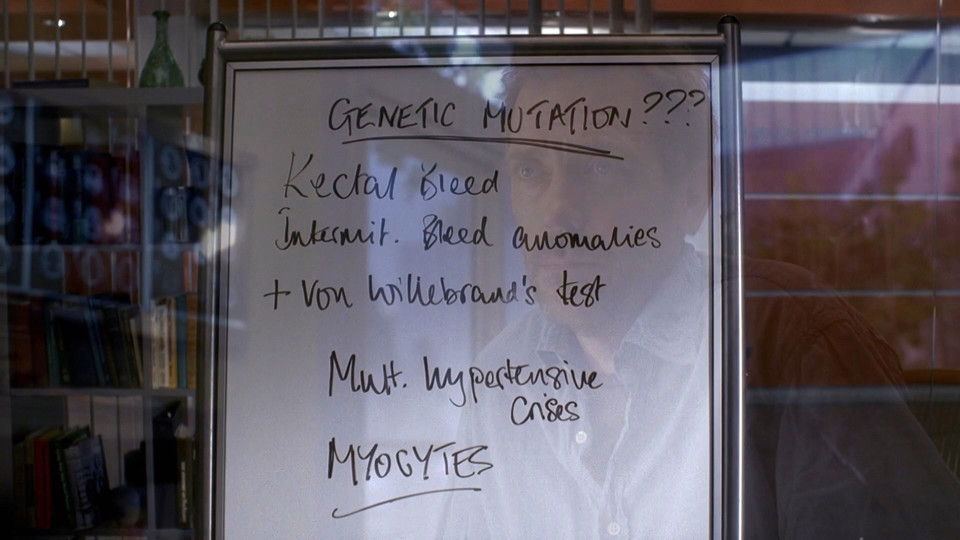 GENETIC MUTATION???
Rectal Bleed
Intermit. Bleed anomalies
+ Von Willebrand's test
Mult. hypertensive
Crises
MYOCYTES